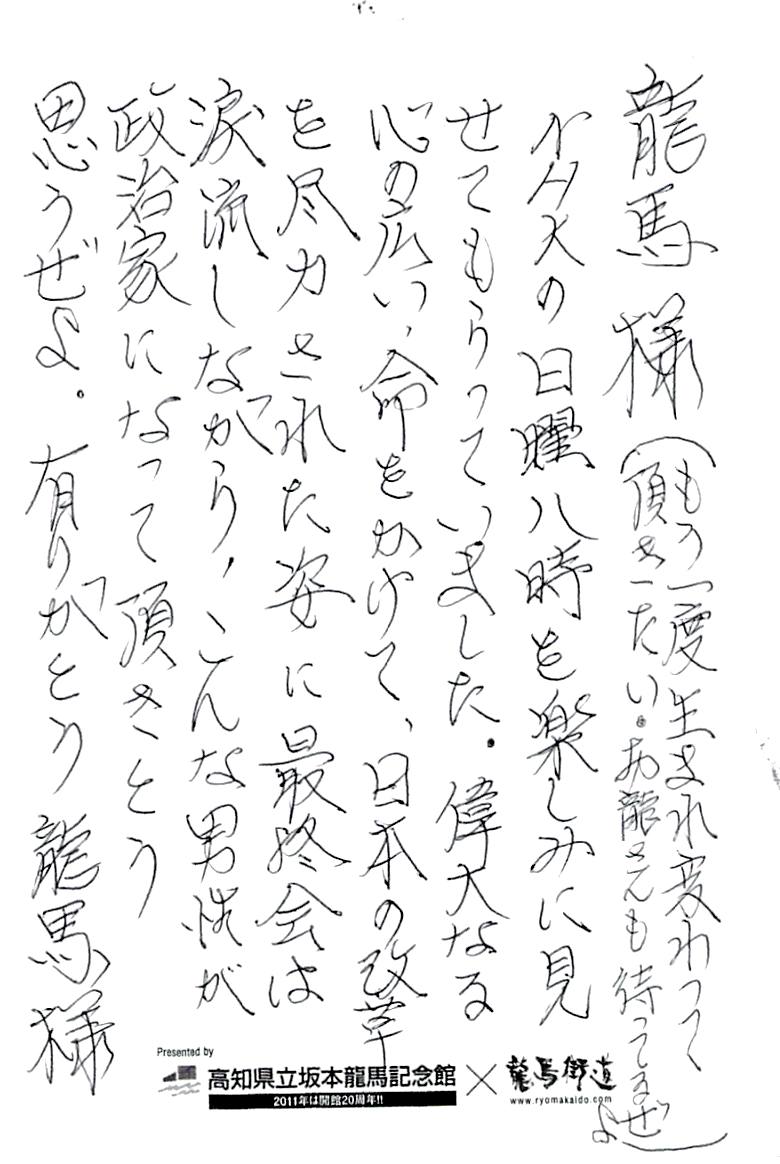 龍馬様
(もう一度生まれ変わって
頂きたい。お龍さんも待ってるぜよ)
の日曜八時を楽しみに見
せてもらっていました。偉大なる
心の広い、命をかけて、日本の改革
を尽力された姿に最終会は
涙流しながら、こんな男性が
政治家になって頂きとう
思うぜよ。有りがとう龍馬様
Presented by
高知県立坂本龍馬記念館×龍馬街道
2011年は開館20周年!!
www.ryomakaido.com